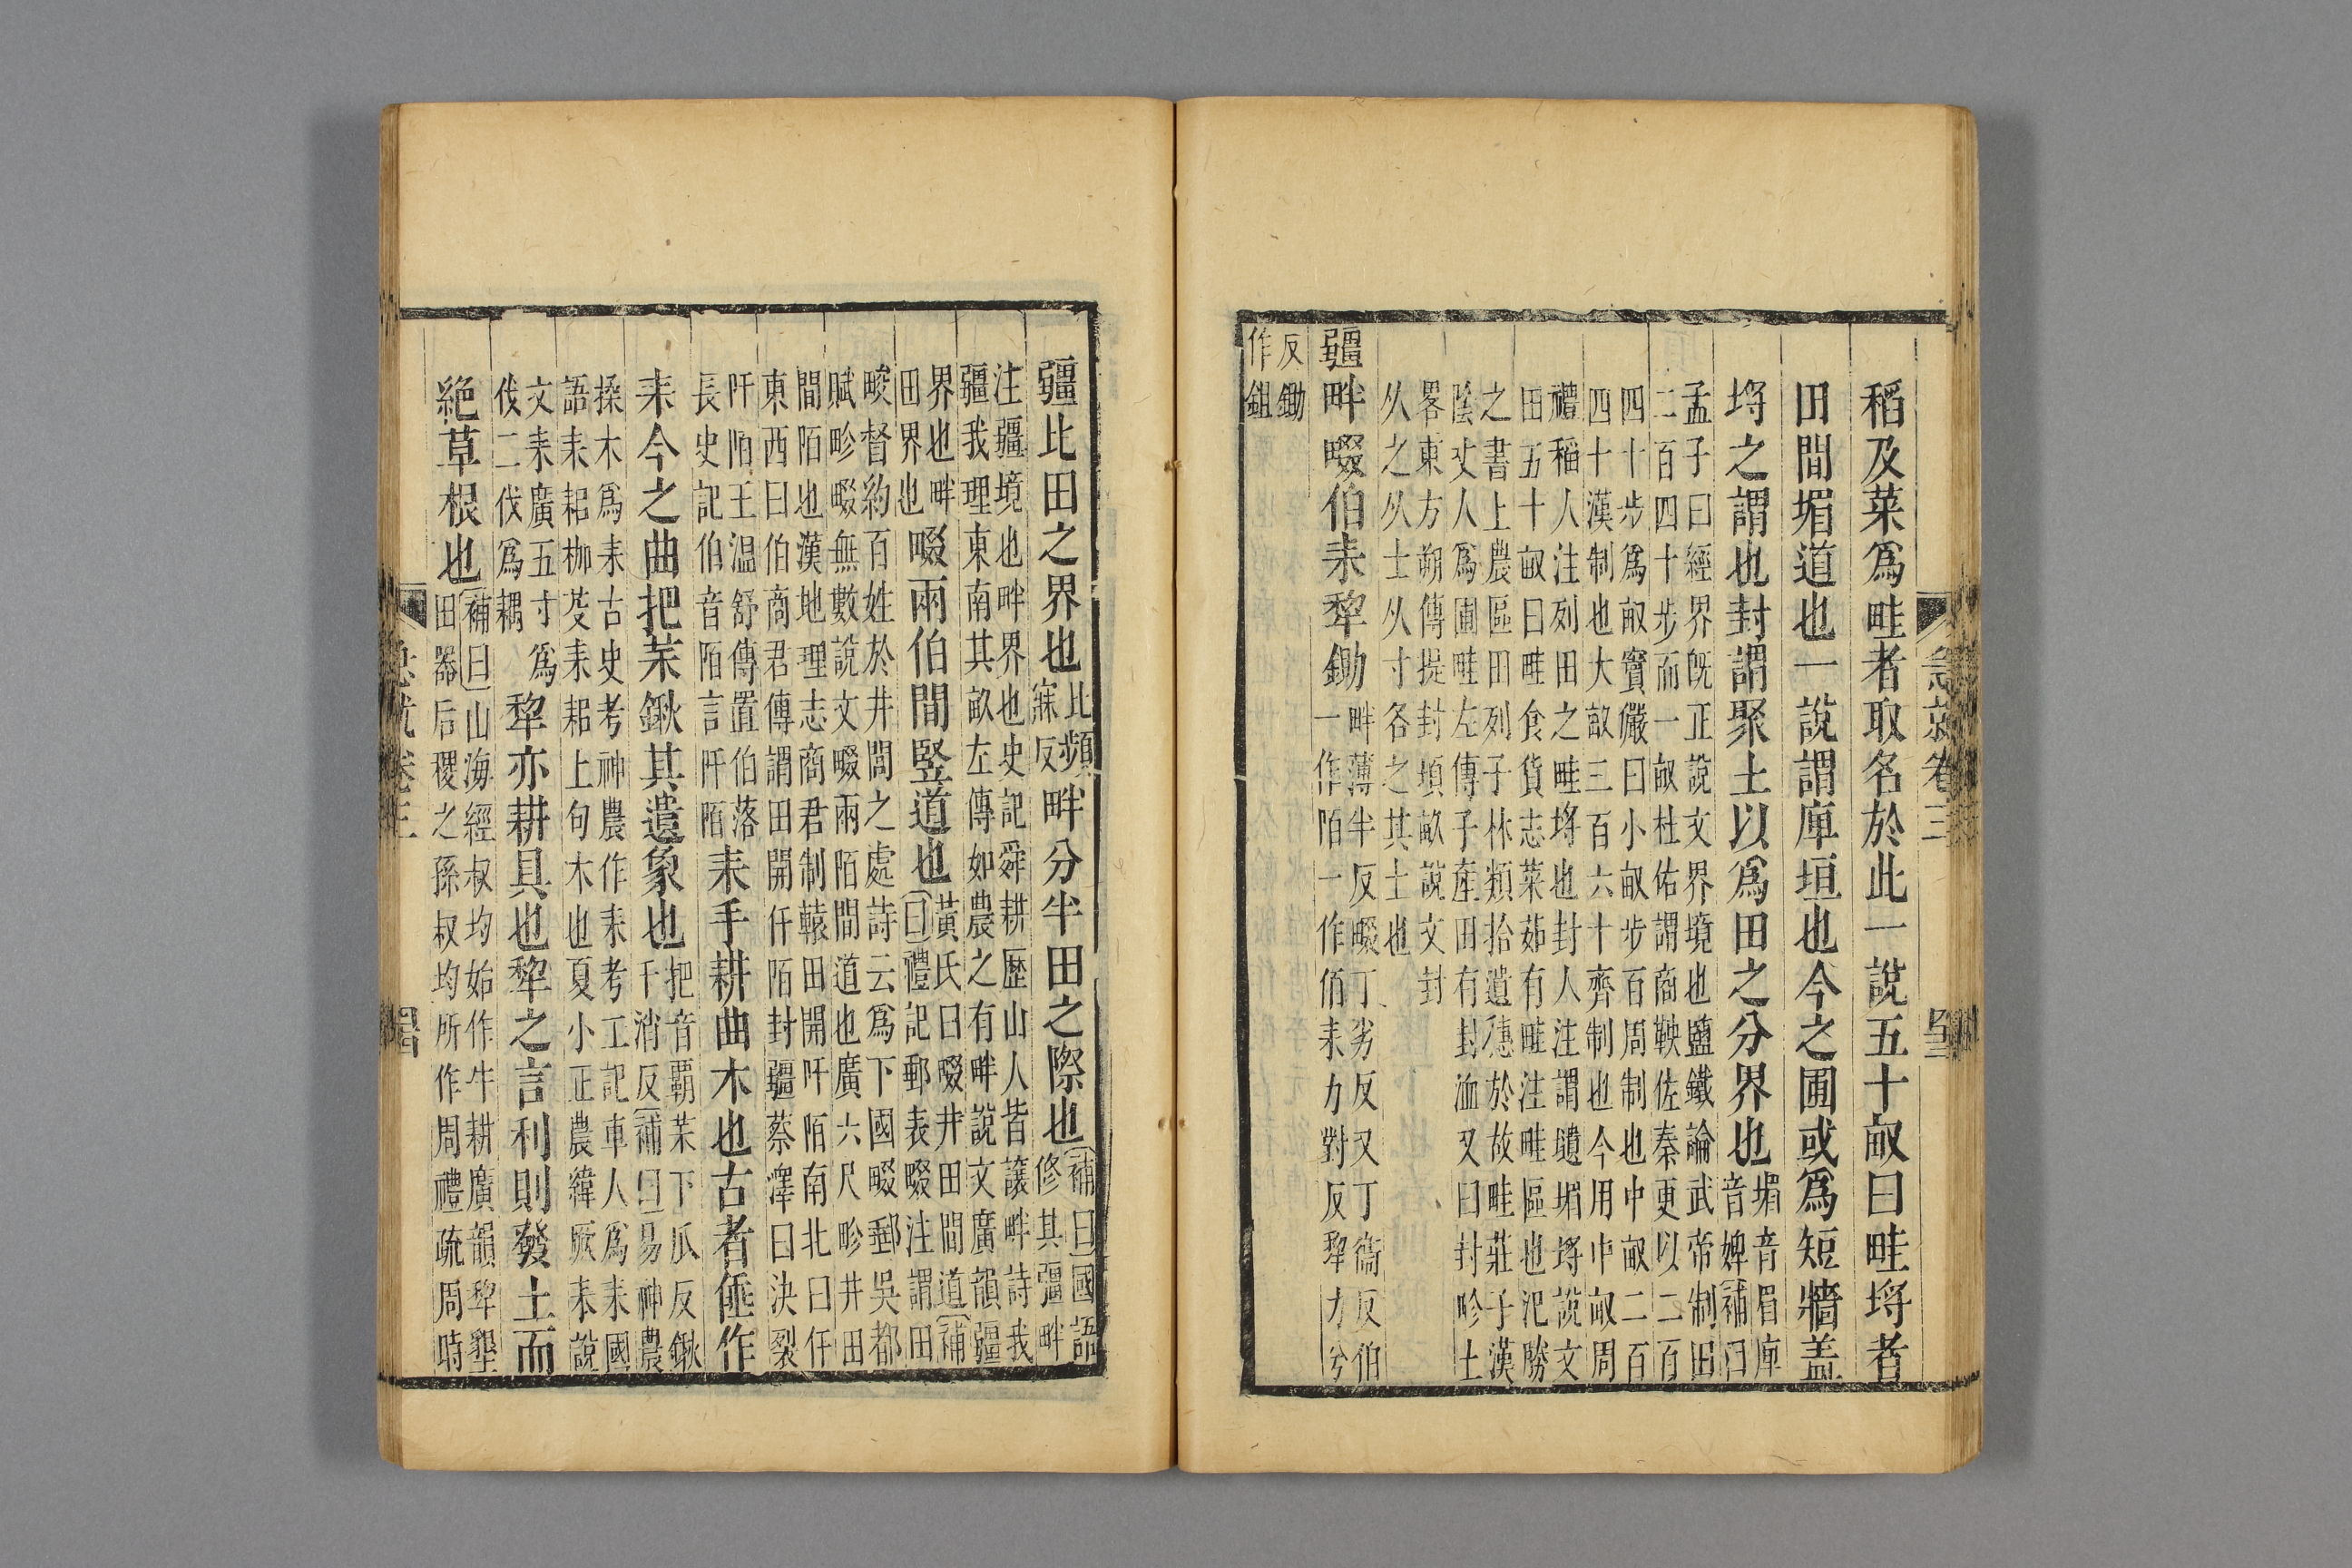 急就卷三
稻及菜爲畦者取名於此一說五十畝曰畦埒者
田間堳道也一說謂庳垣也今之圃或爲短牆蓋
埒之謂也封謂聚土以爲田之分界也堳音眉庳
音婢補曰
孟子曰經界旣正說文界境也鹽鐵論武帝制田
二百四十步而一畝杜佑謂商鞅佐秦更以二百
四十步爲畝竇儼曰小畝步百周制也中畝二百
四十漢制也大畝三百六十齊制也今用中畝周
禮稻人注列田之畦埒也封人注謂壝堳埒說文
田五十畝曰畦食貨志菜茹有畦注畦區也氾勝
之書上農區田列子林類拾遺穗於故畦莊子漢
陰丈人爲圃畦左傳子產田有封洫又曰封畛土
畧東方朔傳提封頃畝說文封
从之从土从寸各之其土也
疆畔畷伯耒犂鋤畔薄半反畷丁劣反又丁衞反伯
一作陌一作佰耒力對反犂力兮
反鋤
作鉏
疆比田之界也比頻
寐反畔分半田之際也補曰國語
修其疆畔
注疆境也畔界也史記舜耕歷山人皆讓畔詩我
疆我理東南其畝左傳如農之有畔說文廣韻疆
界也畔
田界也畷兩伯間竪道也黃氏曰畷井田間道補
曰禮記郵表畷注謂田
畯督約百姓於井閭之處詩云爲下國畷郵吳都
賦畛畷無數說文畷兩陌間道也廣六尺畛井田
間陌也漢地理志商君制轅田開阡陌南北曰仟
東西曰伯商君傳謂田開仟陌封疆蔡澤曰決裂
阡陌王溫舒傳置伯落
長史記伯音陌言阡陌耒手耕曲木也古者倕作
耒今之曲把茉鍬其遺象也把音霸茉下瓜反鍬
千消反補曰易神農
揉木爲耒古史考神農作耒考工記車人爲耒國
語耒耜枷芟耒耜上句木也夏小正農緯厥耒說
文耒廣五寸爲
伐二伐爲耦犂亦耕具也犂之言利則發土而
絕草根也補曰山海經叔均始作牛耕廣韻犂墾
田器后稷之孫叔均所作周禮疏周時